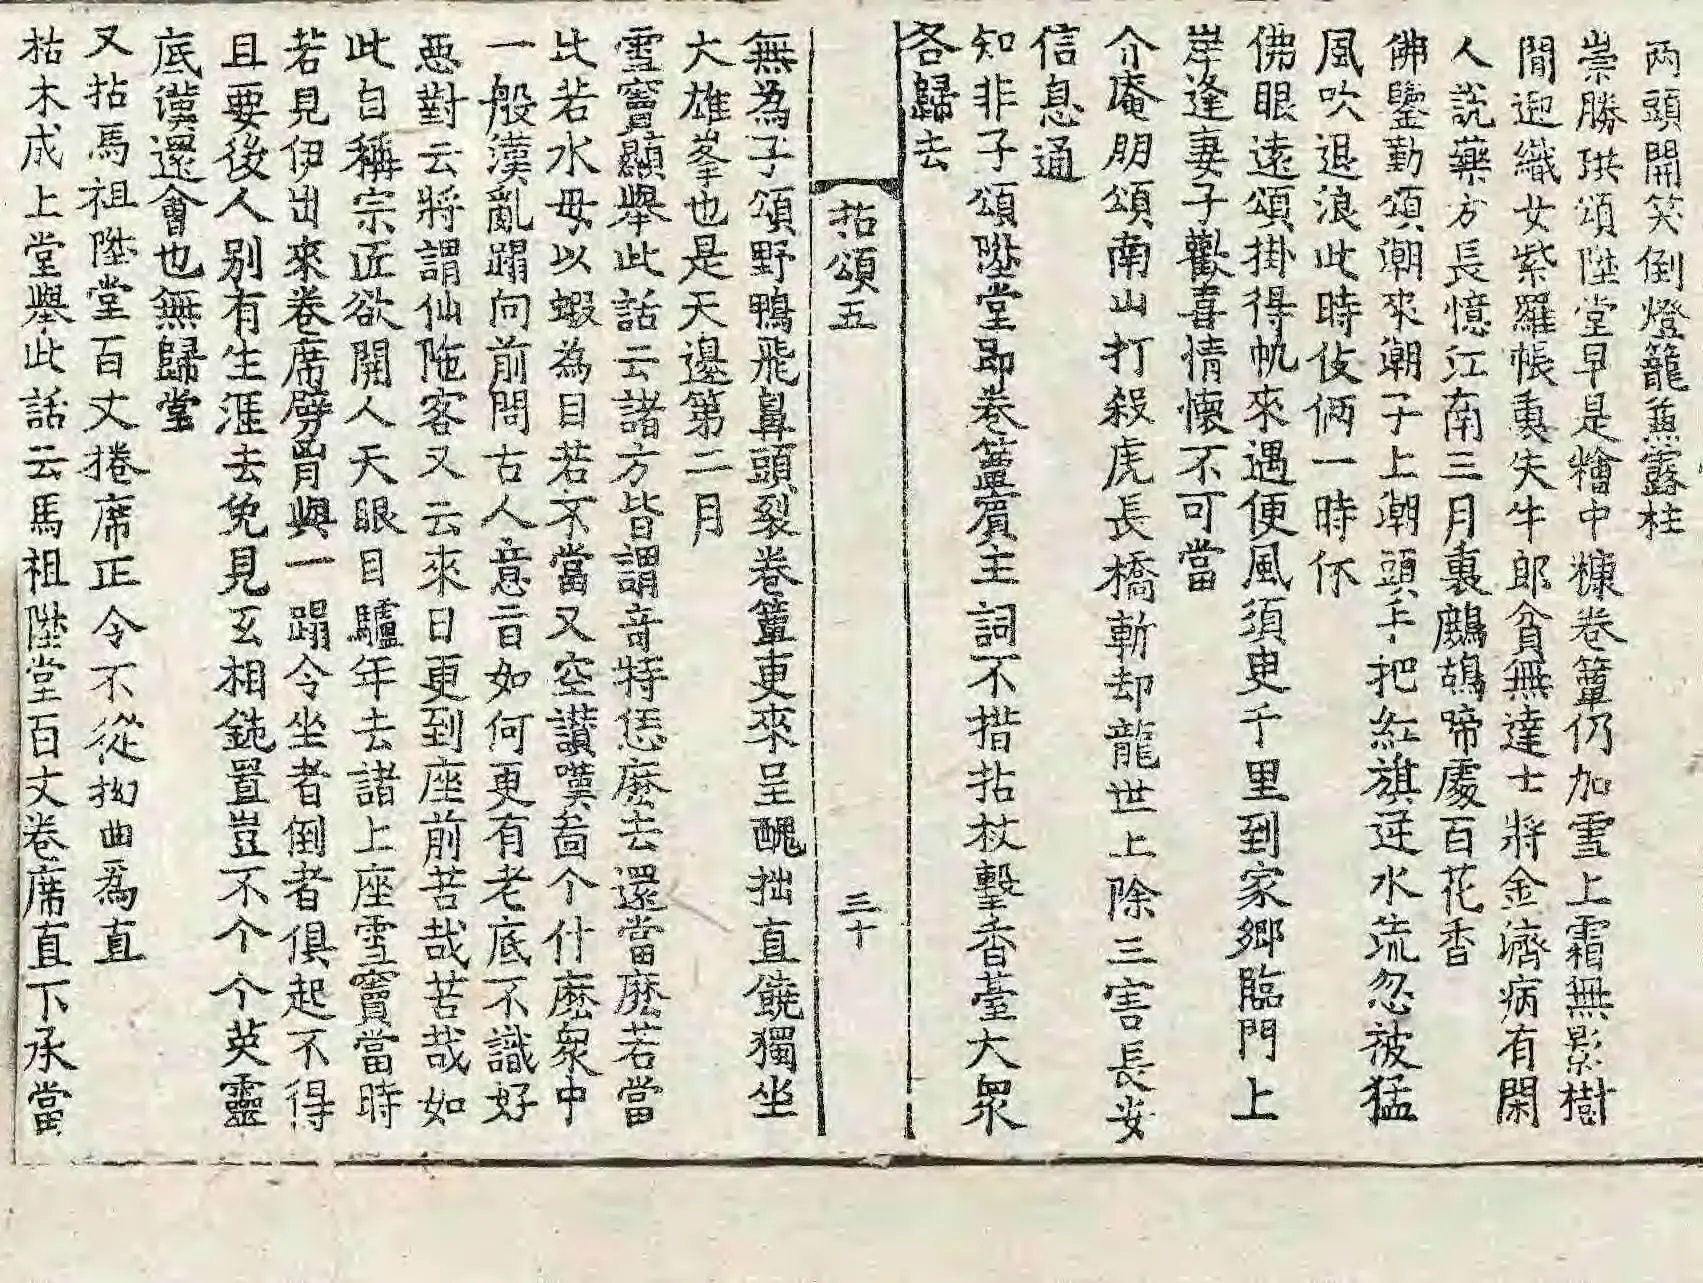 兩頭開笑倒燈籠蕉露柱
崇勝珙頌陞堂早是糩中糠卷簟仍加雪上霜無影樹
閒迎織女紫羅帳裏失牛郎貧無達士將金濟病有閑
人說藥方長憶江南三月裏鷓鴣啼處百花香
佛鑒勤頌潮來潮子上潮頭手把紅旗逆水流忽被猛
風吹退浪此時伎倆一時休
佛眼遠頌掛得帆來遇便風須臾千里到家鄉臨門上
岸逢妻子歡喜情懷不可當
介庵朋頌南山打殺虎長橋斬却龍世上除三害長安
信息通
知非子頌陞堂即卷簟賓主詞不措拈杖擊香臺大衆
各歸去
拈頌五
三十
無為子頌野鴨飛鼻頭裂卷簟更來呈醜拙直饒獨坐
大雄峯也是天邊第二月
雪竇顯擧此話云諸方皆謂竒特恁麽去還當麽若當
比若水母以蝦為目若不當又空讃嘆啚个什麽衆中
一般漢亂蹋向前問古人意旨如何更有老底不識好
惡對云將謂仙陁客又云來日更到座前苦哉苦哉如
此自稱宗匠欲開人天眼目驢年去諸上座雪竇當時
若見伊出來卷席劈胷與一蹋令坐者倒者俱起不得
且要後人別有生涯去免見互相鈍置豈不个个英靈
底漢還會也無歸堂
又拈馬祖陞堂百丈捲席正令不從拗曲為直
枯木成上堂擧此話云馬祖陞堂百丈卷席直下承當